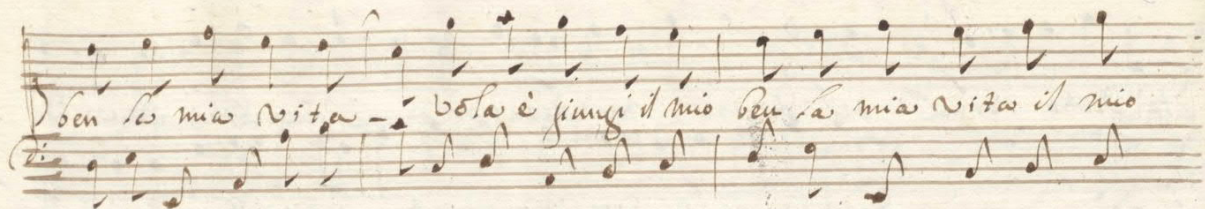 ben la mia vita - vola è giungi il mio ben la mia vita il mio